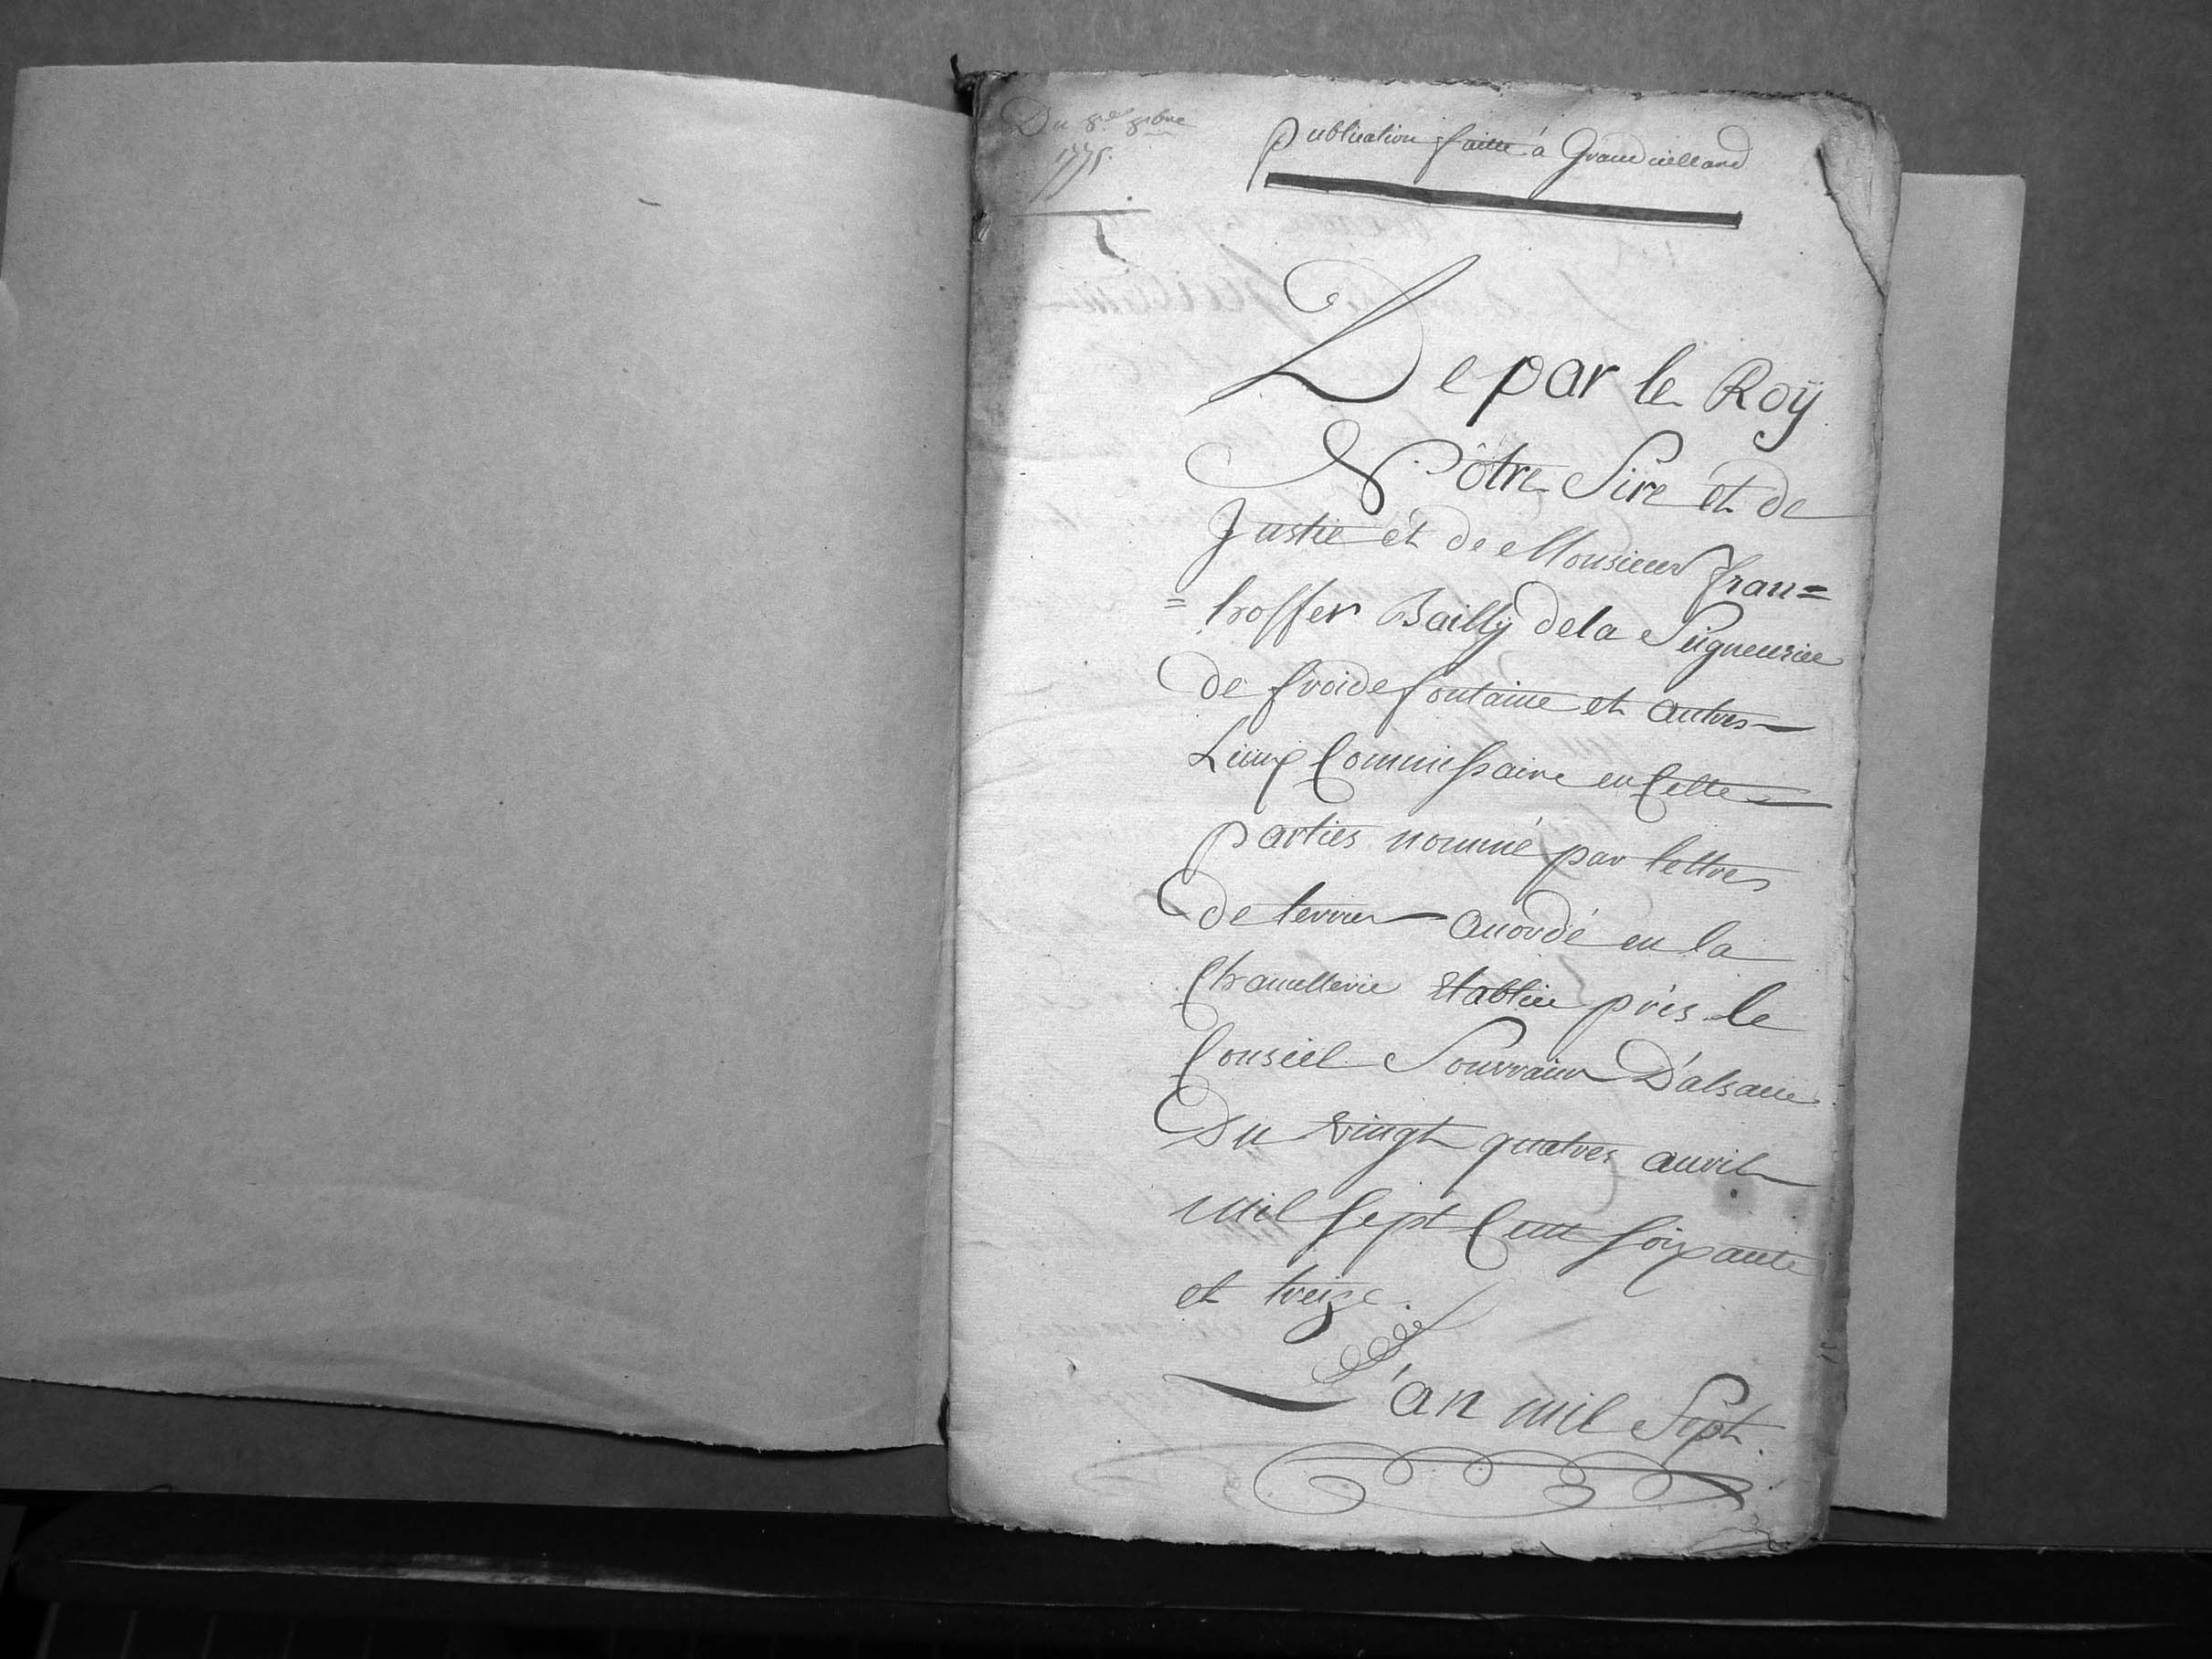 Du 8e 8bre
1775.
publication faitte á Grandvillard
De par le Roÿ
Nôtre Sire et de
Justie et de Monsieur fran=
=hoffer Bailly dela Seigneuriee
de froidefontaine et autres
Lieux Commissaire en Cette
parties nommé par lettres
de terrier accordé en la
Chancellerie Etabliee prés le
Conseil Souvrain D'alsace
Du vingt quatres auvril
mil sept Cent soixante
et treize.
L'an mil Sept.